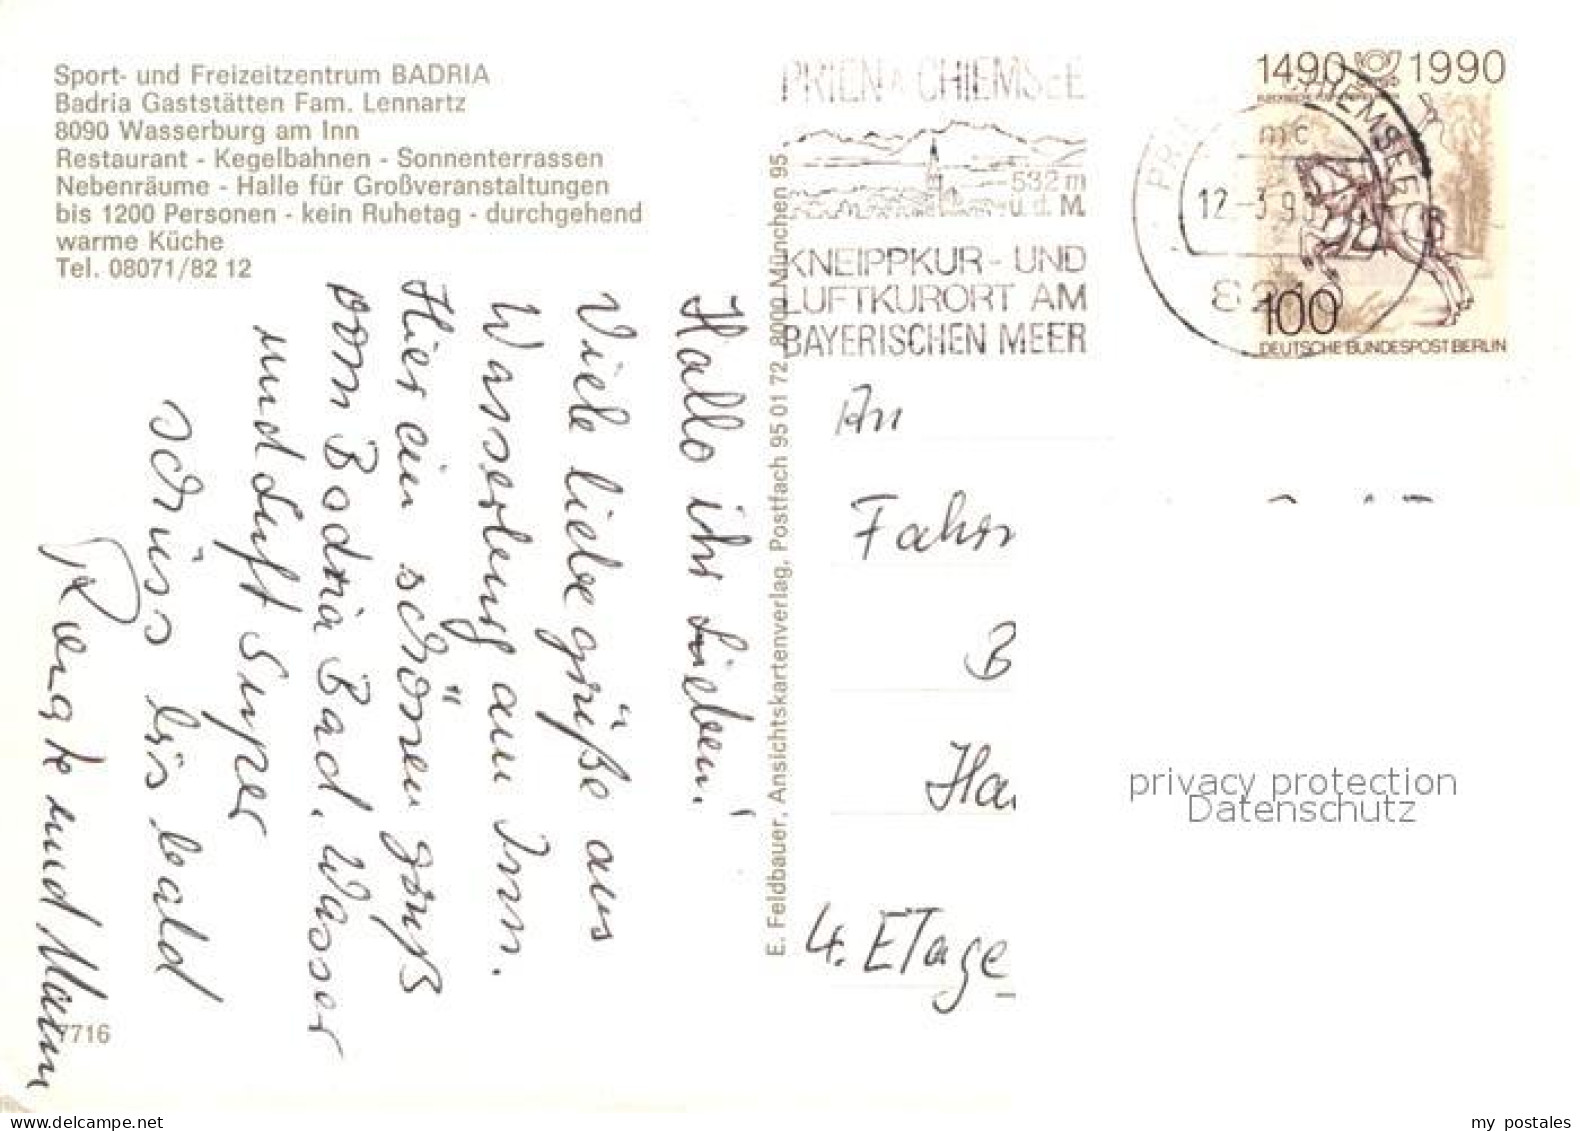 Sport- und Freizeitzentrum BADRIA
Badria Gaststätten Fam. Lennartz
8090 Wasserburg am Inn
Restaurant - Kegelbahnen - Sonnenterrassen
Nebenräume - Halle für Großveranstaltungen
bis 1200 Personen - kein Ruhetag - durchgehend
warme Küche
Tel. 08071/82 12
Hallo ihr Lieben!
Viele liebe grüße aus
Wasserburg am Inn.
Hier ein schönen gruß
vom Badria Bad. Wasser
und Luft Super
schüss bis bald
Renate und Mann
7716
E. Feldbauer, Ansichtskartenverlag, Postfach 95 01 72, 8000 München 95
PRIEN A CHIEMSEE
532 m
ü. d. M.
KNEIPPKUR - UND
LUFTKURORT AM
BAYERISCHEN MEER
CHIEMSEE
mc
12.-3.90
821
1490 1990
100
DEUTSCHE BUNDESPOST BERLIN
An
Fahrn
B
Ha
4. ETage
privacy protection
Datenschutz
my postales